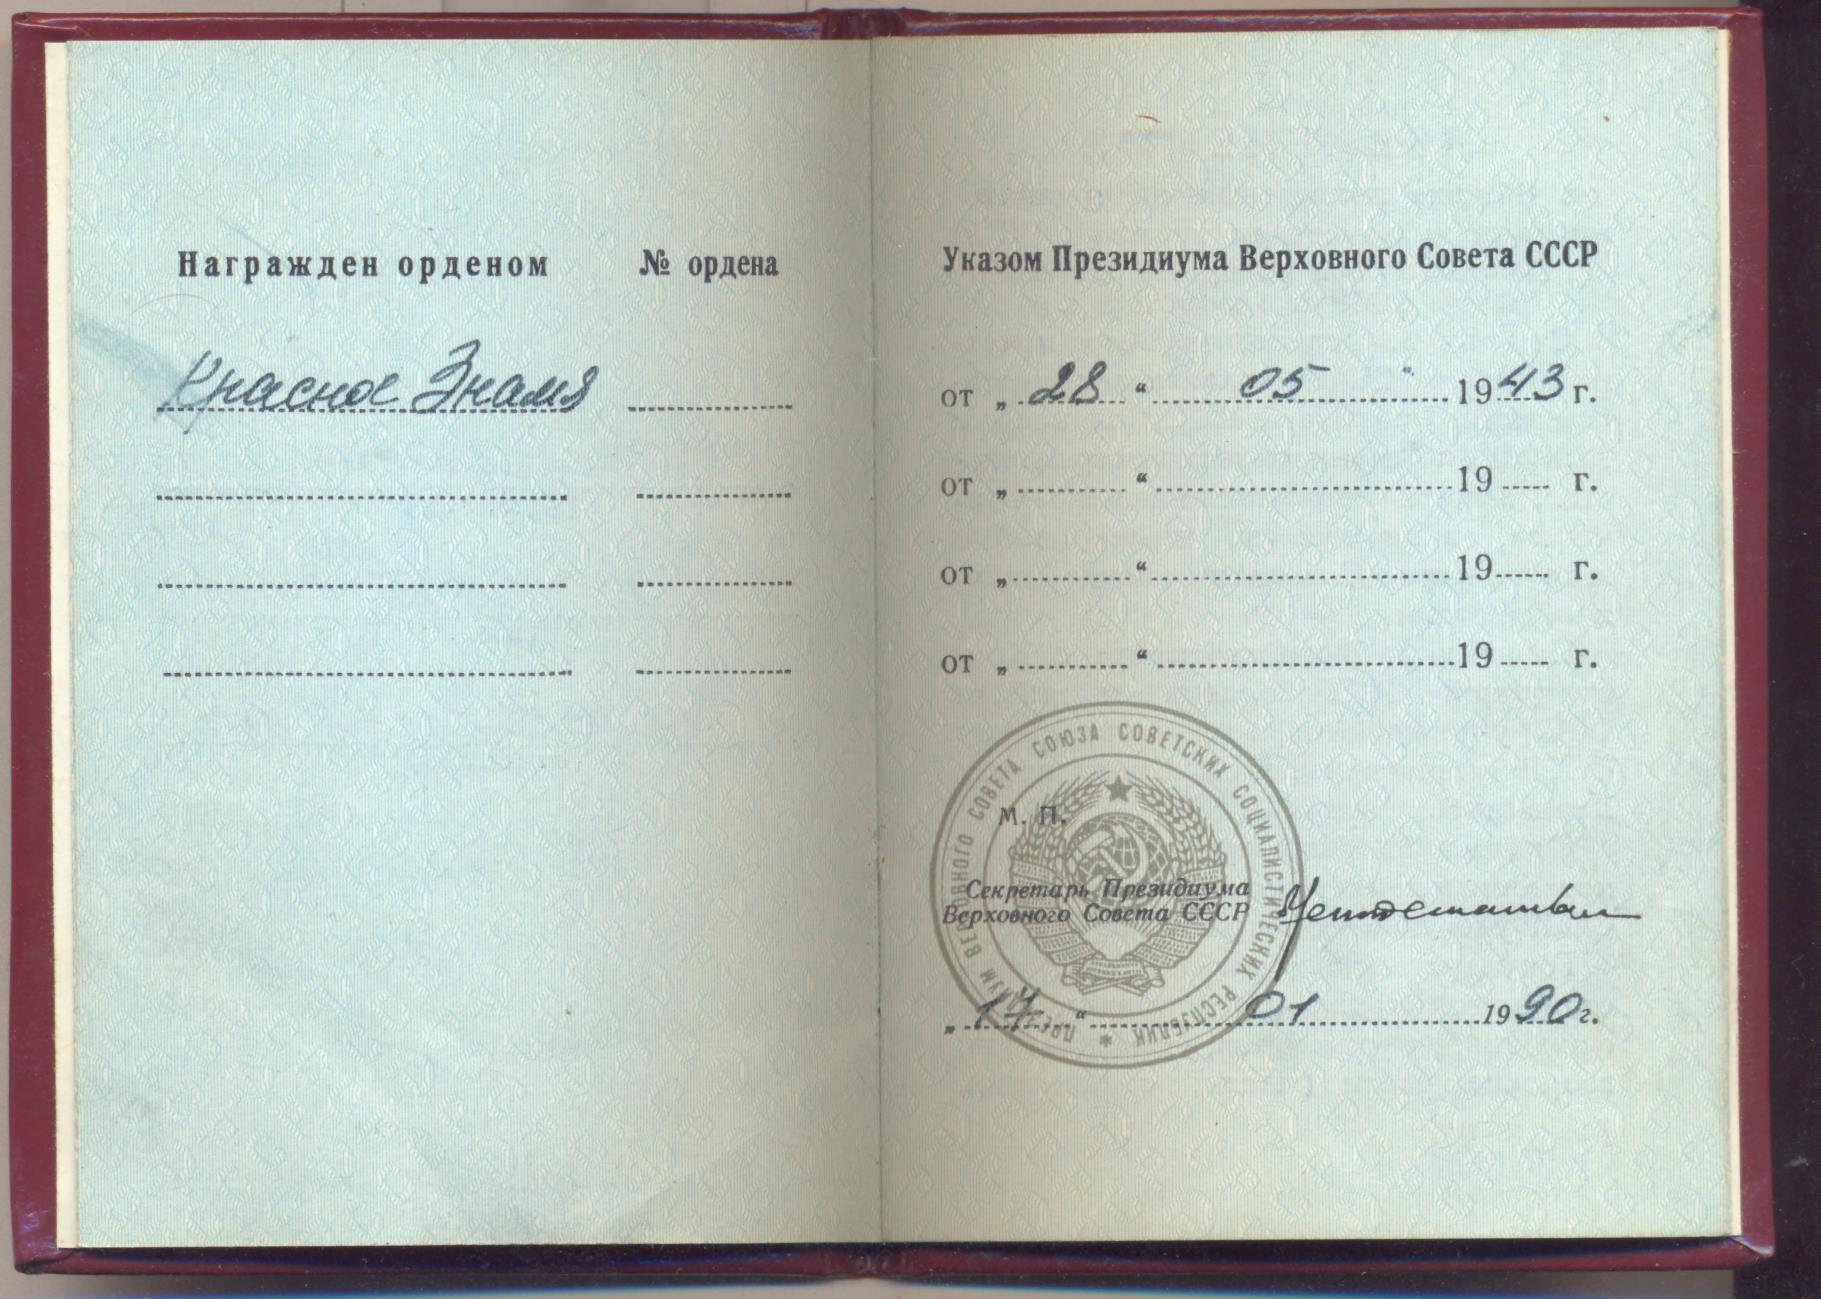 Награжден орденом № ордена
Красное Знамя
Указом Президиума Верховного Совета СССР
от „ 28 “ 05 1943 г.
от „ “ 19 г.
от „ “ 19 г.
от „ “ 19 г.
ПРЕЗИДИУМ ВЕРХОВНОГО СОВЕТА СОЮЗА СОВЕТСКИХ СОЦИАЛИСТИЧЕСКИХ РЕСПУБЛИК *
М. П.
Секретарь Президиума
Верховного Совета СССР
„ 17 “ 01 1990 г.